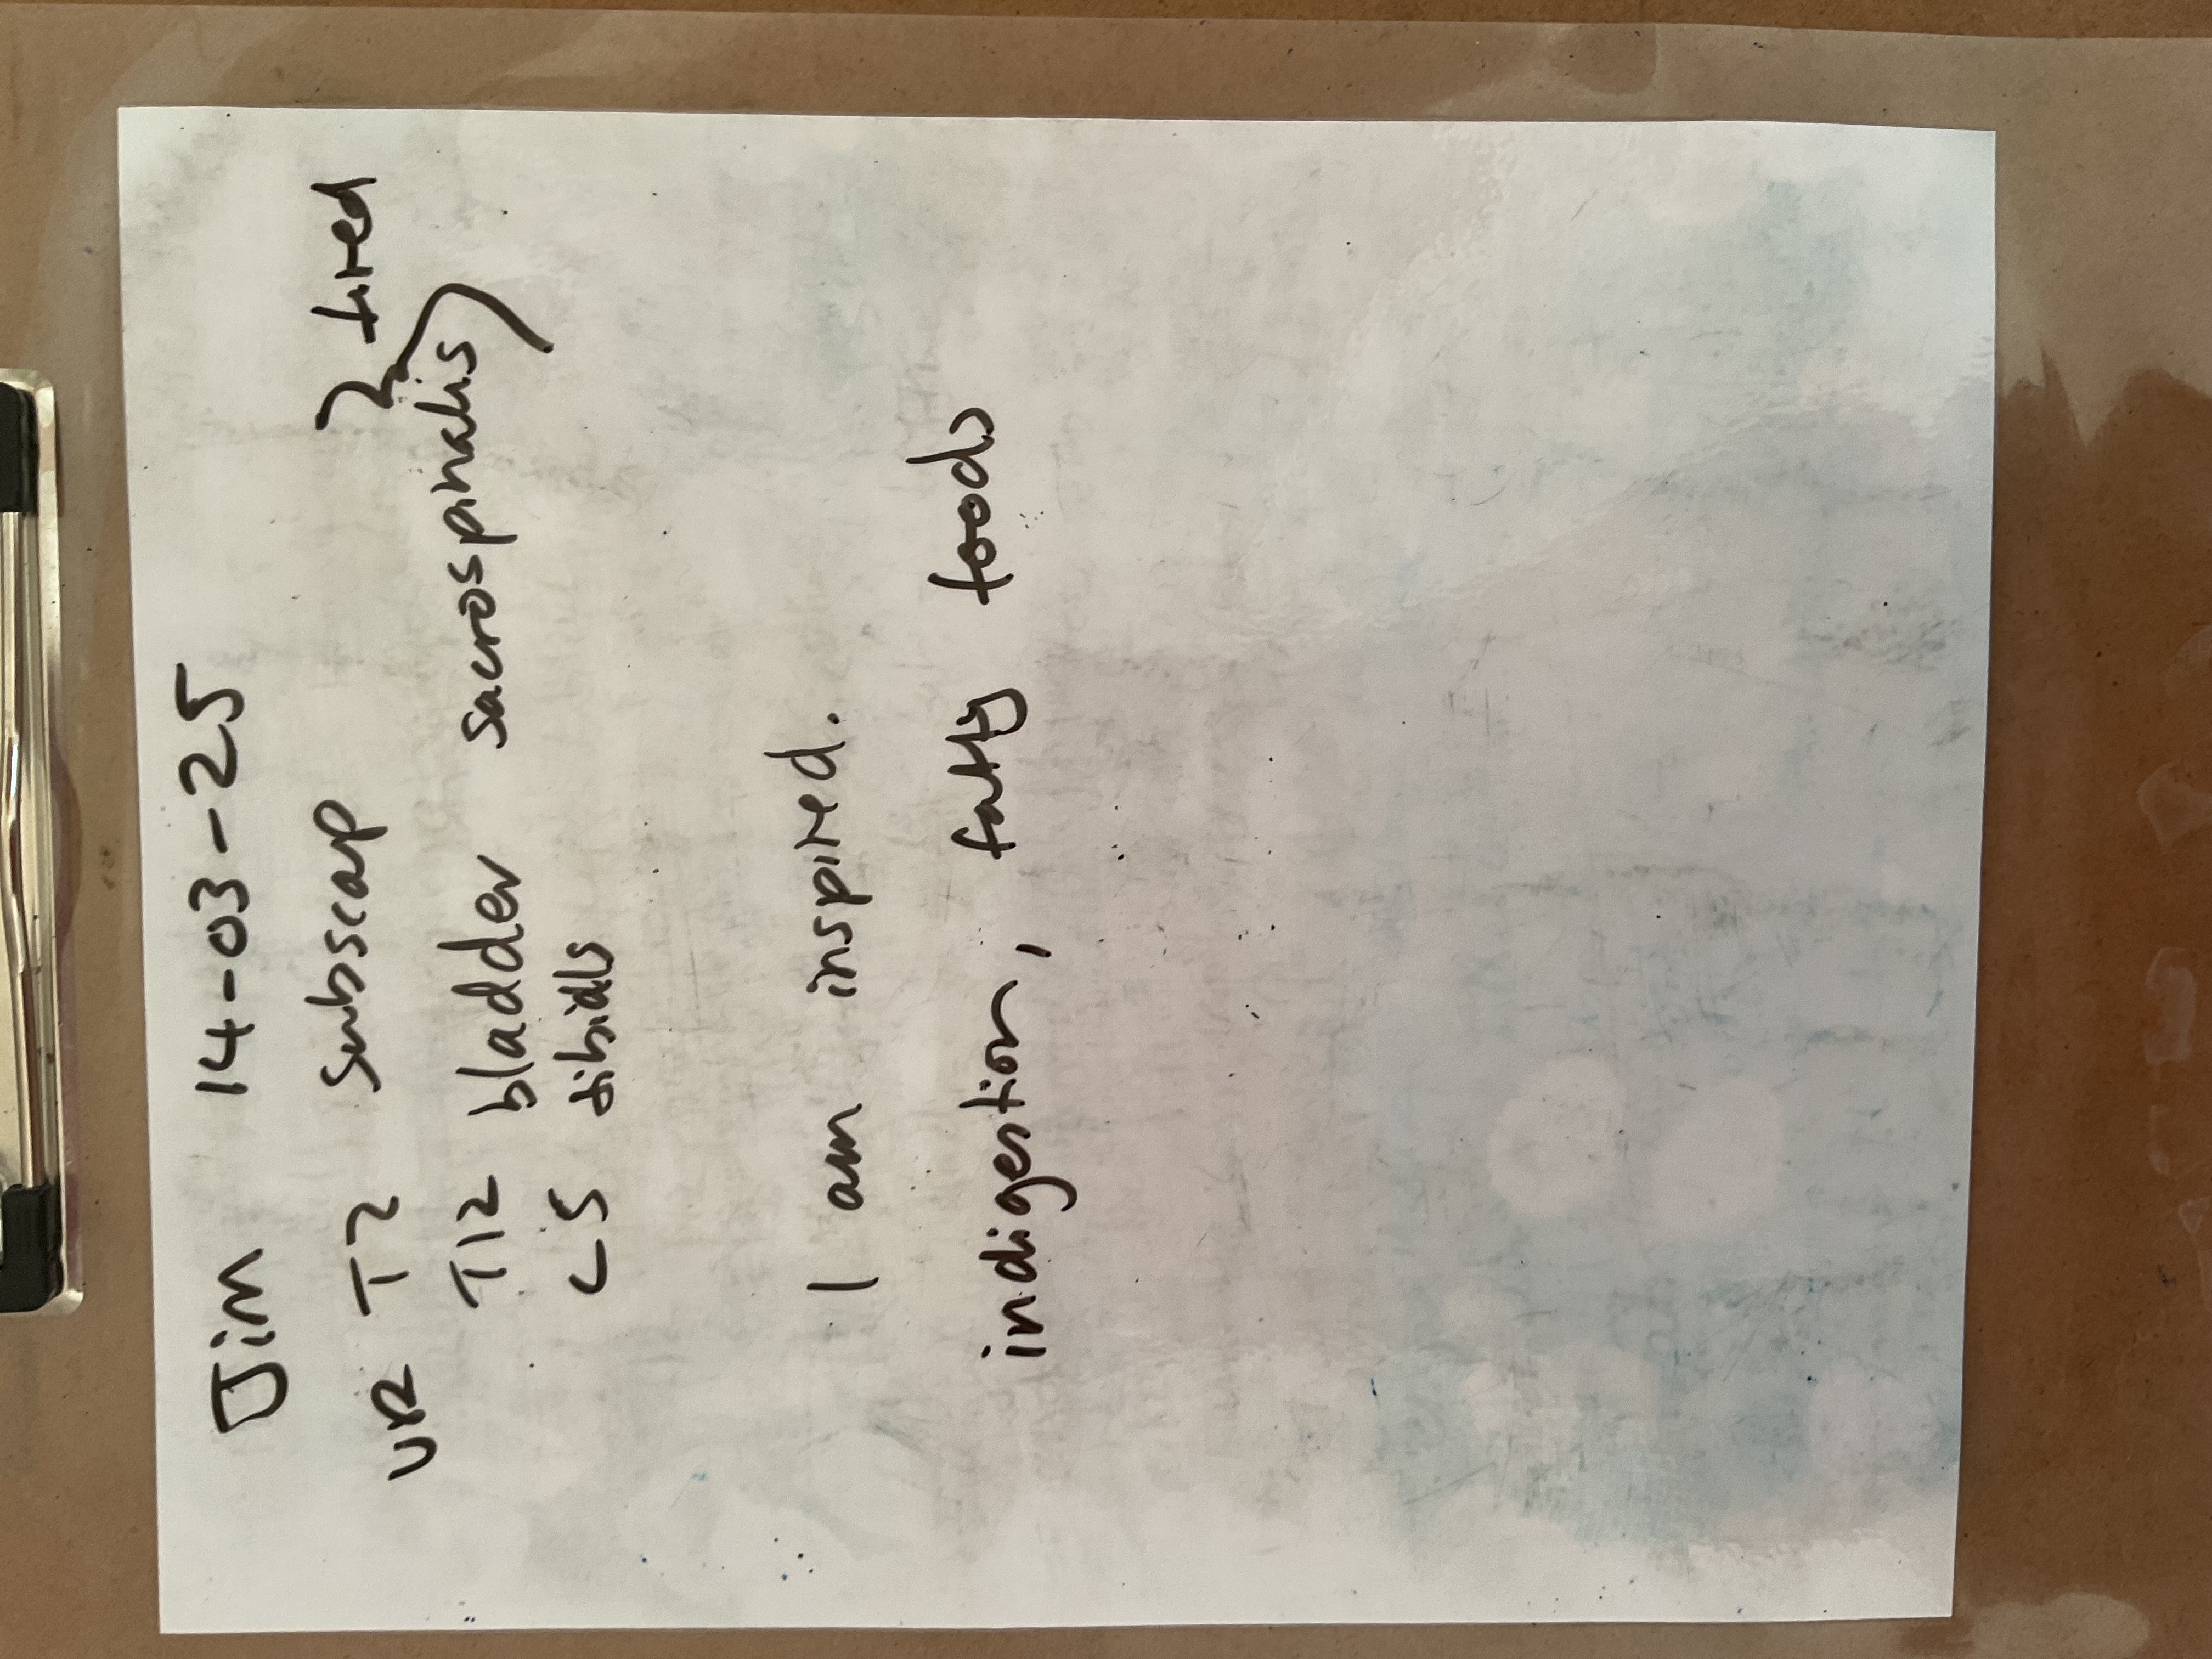 Jim 14-03-25
UR T2 subscap } tired
T12 bladder sacrospinalis
L5 tibials
I am inspired.
indigestion, fatty foods